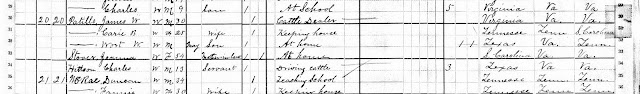 — Charles W M 9 Son 1 At School 5 Virginia Va. Va.
20 20 Patillo, James W W M 30 1 Cattle Dealer Virginia Va. Va.
— Carie B W F 25 Wife 1 Keeping house Tennessee Tenn S Carolina
— West W W M Son 1 At home 1 1 Texas Va. Tenn.
Stover Joanna W F 59 Mother in law 1 At home S Carolina Va. Va.
Hutson Charles W M 13 Servant 1 Driving cattle 3 Texas Va. Va.
21 21 McRae Duncan W M 34 1 Teaching School Tennessee Tenn. Tenn.
— Fannie W F 30 Wife 1 Keeping house Tennessee Tenn. Tenn.